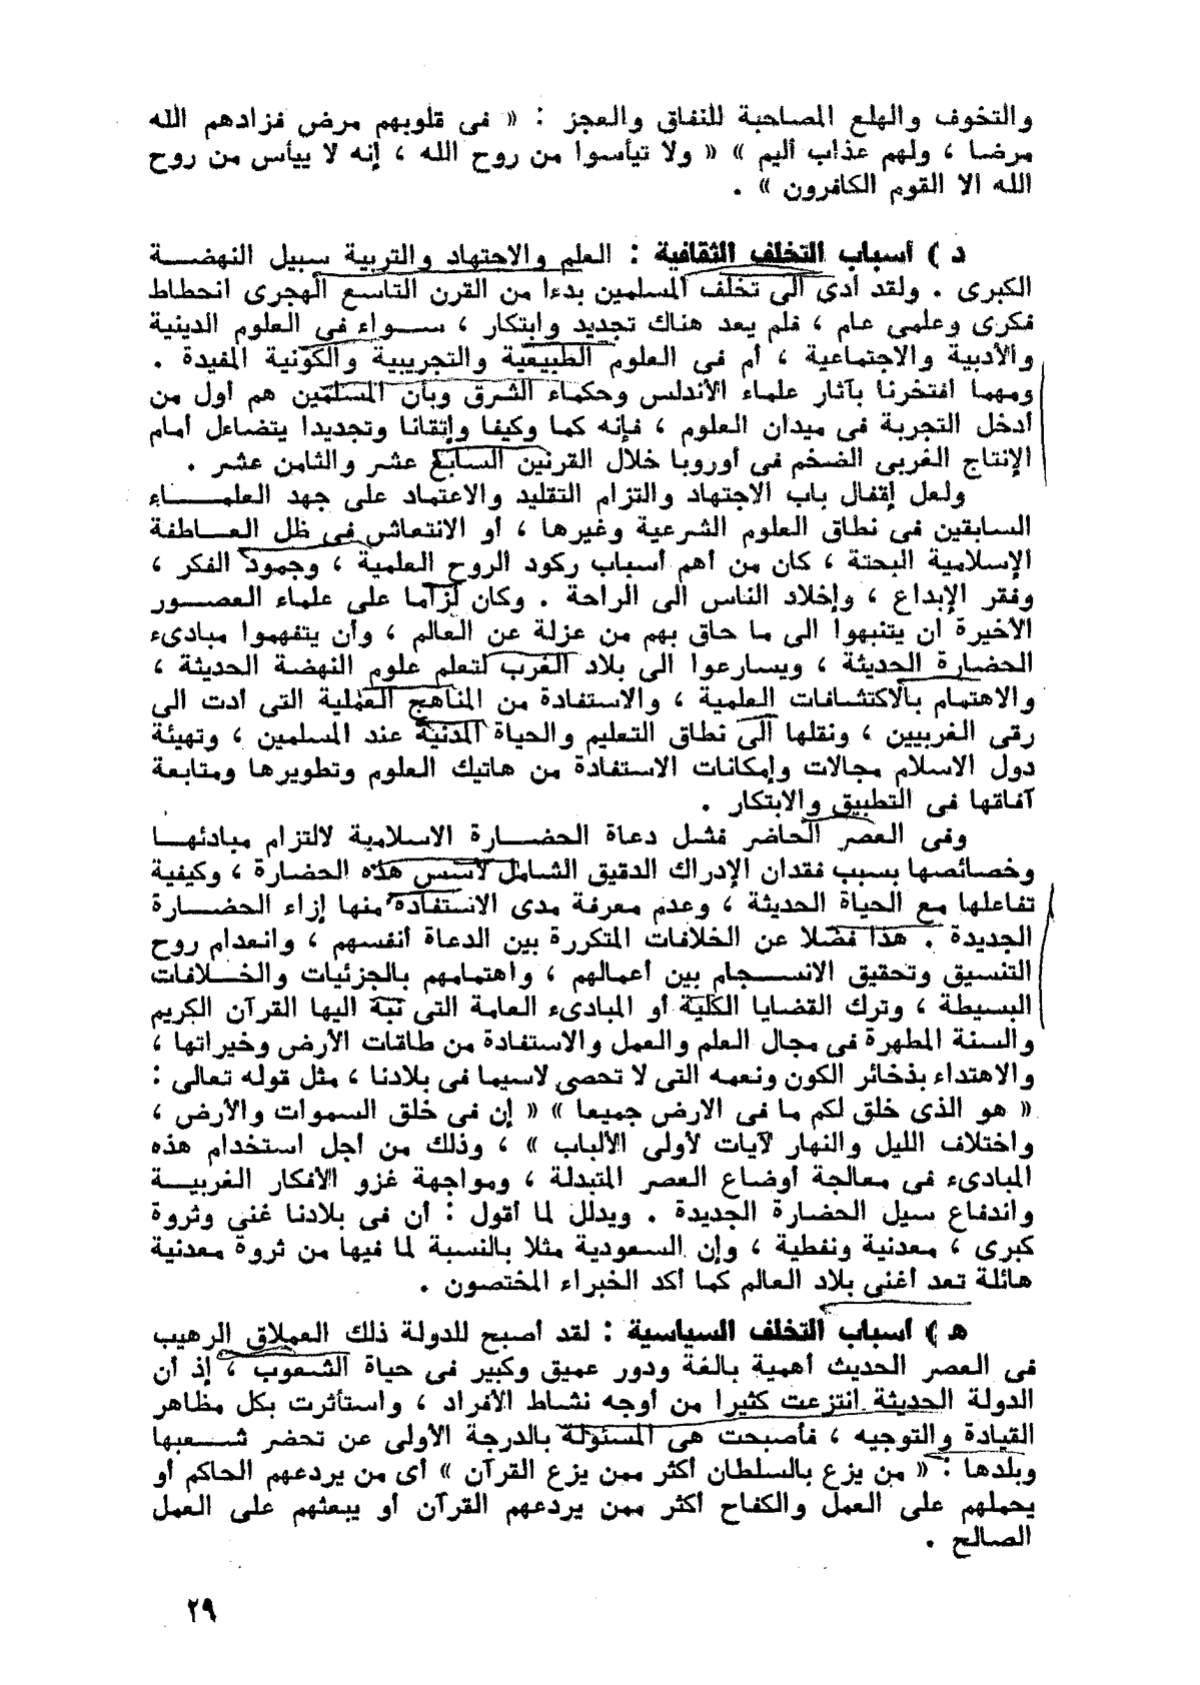 والتخوف والهلع المصاحبة للنفاق والعجز : « فى قلوبهم مرض فزادهم الله
مرضا ، ولهم عذاب أليم » « ولا تيأسوا من روح الله ، إنه لا ييأس من روح
الله الا القوم الكافرون » .
د ) أسباب التخلف الثقافية : العلم والاجتهاد والتربية سبيل النهضة
الكبرى . ولقد أدى الى تخلف المسلمين بدءا من القرن التاسع الهجرى انحطاط
فكرى وعلمى عام ، فلم يعد هناك تجديد وابتكار ، سواء فى العلوم الدينية
والأدبية والاجتماعية ، أم فى العلوم الطبيعية والتجريبية والكونية المفيدة .
ومهما افتخرنا بآثار علماء الأندلس وحكماء الشرق وبأن المسلمين هم أول من
أدخل التجربة فى ميدان العلوم ، فإنه كما وكيفا وإتقانا وتجديدا يتضاءل أمام
الإنتاج الغربى الضخم فى أوروبا خلال القرنين السابع عشر والثامن عشر .
ولعل إقفال باب الاجتهاد والتزام التقليد والاعتماد على جهد العلماء
السابقين فى نطاق العلوم الشرعية وغيرها ، أو الانتعاش فى ظل العاطفة
الإسلامية البحتة ، كان من أهم أسباب ركود الروح العلمية ، وجمود الفكر ،
وفقر الإبداع ، وإخلاد الناس الى الراحة . وكان لزاما على علماء العصور
الأخيرة أن يتنبهوا الى ما حاق بهم من عزلة عن العالم ، وأن يتفهموا مبادىء
الحضارة الحديثة ، ويسارعوا الى بلاد الغرب لتعلم علوم النهضة الحديثة ،
والاهتمام بالاكتشافات العلمية ، والاستفادة من المناهج العملية التى أدت الى
رقى الغربيين ، ونقلها الى نطاق التعليم والحياة المدنية عند المسلمين ، وتهيئة
دول الاسلام مجالات وإمكانات الاستفادة من هاتيك العلوم وتطويرها ومتابعة
آفاقها فى التطبيق والابتكار .
وفى العصر الحاضر فشل دعاة الحضارة الاسلامية لالتزام مبادئها
وخصائصها بسبب فقدان الإدراك الدقيق الشامل لأسس هذه الحضارة ، وكيفية
تفاعلها مع الحياة الحديثة ، وعدم معرفة مدى الاستفادة منها إزاء الحضارة
الجديدة . هذا فضلا عن الخلافات المتكررة بين الدعاة أنفسهم ، وانعدام روح
التنسيق وتحقيق الانسجام بين أعمالهم ، واهتمامهم بالجزئيات والخلافات
البسيطة ، وترك القضايا الكلية أو المبادىء العامة التى نبه اليها القرآن الكريم
والسنة المطهرة فى مجال العلم والعمل والاستفادة من طاقات الأرض وخيراتها ،
والاهتداء بذخائر الكون ونعمه التى لا تحصى لاسيما فى بلادنا ، مثل قوله تعالى :
« هو الذى خلق لكم ما فى الارض جميعا » « إن فى خلق السموات والأرض ،
واختلاف الليل والنهار لآيات لأولى الألباب » ، وذلك من أجل استخدام هذه
المبادىء فى معالجة أوضاع العصر المتبدلة ، ومواجهة غزو الأفكار الغربية
واندفاع سيل الحضارة الجديدة . ويدلل لما أقول : أن فى بلادنا غنى وثروة
كبرى ، معدنية ونفطية ، وإن السعودية مثلا بالنسبة لما فيها من ثروة معدنية
هائلة تعد أغنى بلاد العالم كما أكد الخبراء المختصون .
هـ ) أسباب التخلف السياسية : لقد أصبح للدولة ذلك العملاق الرهيب
فى العصر الحديث أهمية بالغة ودور عميق وكبير فى حياة الشعوب ، إذ أن
الدولة الحديثة انتزعت كثيرا من أوجه نشاط الأفراد ، واستأثرت بكل مظاهر
القيادة والتوجيه ، فأصبحت هى المسئولة بالدرجة الأولى عن تحضر شعبها
وبلدها : « من يزع بالسلطان أكثر ممن يزع القرآن » أى من يردعهم الحاكم أو
يحملهم على العمل والكفاح أكثر ممن يردعهم القرآن أو يبعثهم على العمل
الصالح .
٢٩